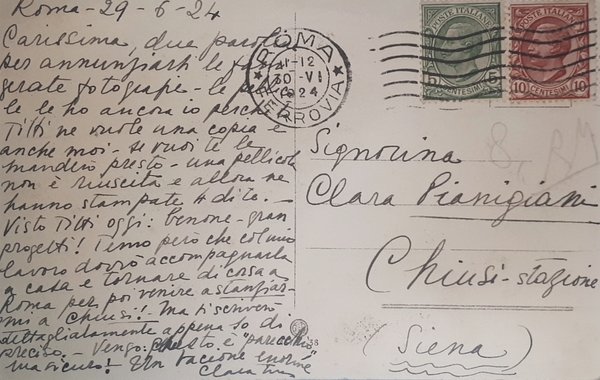 Roma - 29 - 6 - 24
Carissima, due parole
per annunziarti le fami
gerate fotografie - le
le ho ancora io perchè
Titti ne vuole una copia e
anche moi - se vuoi te le
manderò presto - una pellicola
non è riuscita e allora ne
hanno stampate 4 di te. -
Visto Titti oggi: benone - gran
progetti! Temo però che col mio
lavoro dovrò accompagnarla
a casa e tornare di corsa a
Roma per poi venire a stanziar-
mi a Chiusi! Ma ti scriverò
dettagliatamente appena so di
preciso. - Vengo: questo è "parecchio"
ma sicuro! Un bacione enorme
Clara tua
ROMA
FERROVIA
11-12
30 VI
1924
POSTE ITALIANE
5 5
CENTESIMI
POSTE ITALIANE
10 CENTESIMI 10
Signorina
Clara Pianigiani
Chiusi - stazione
(Siena)